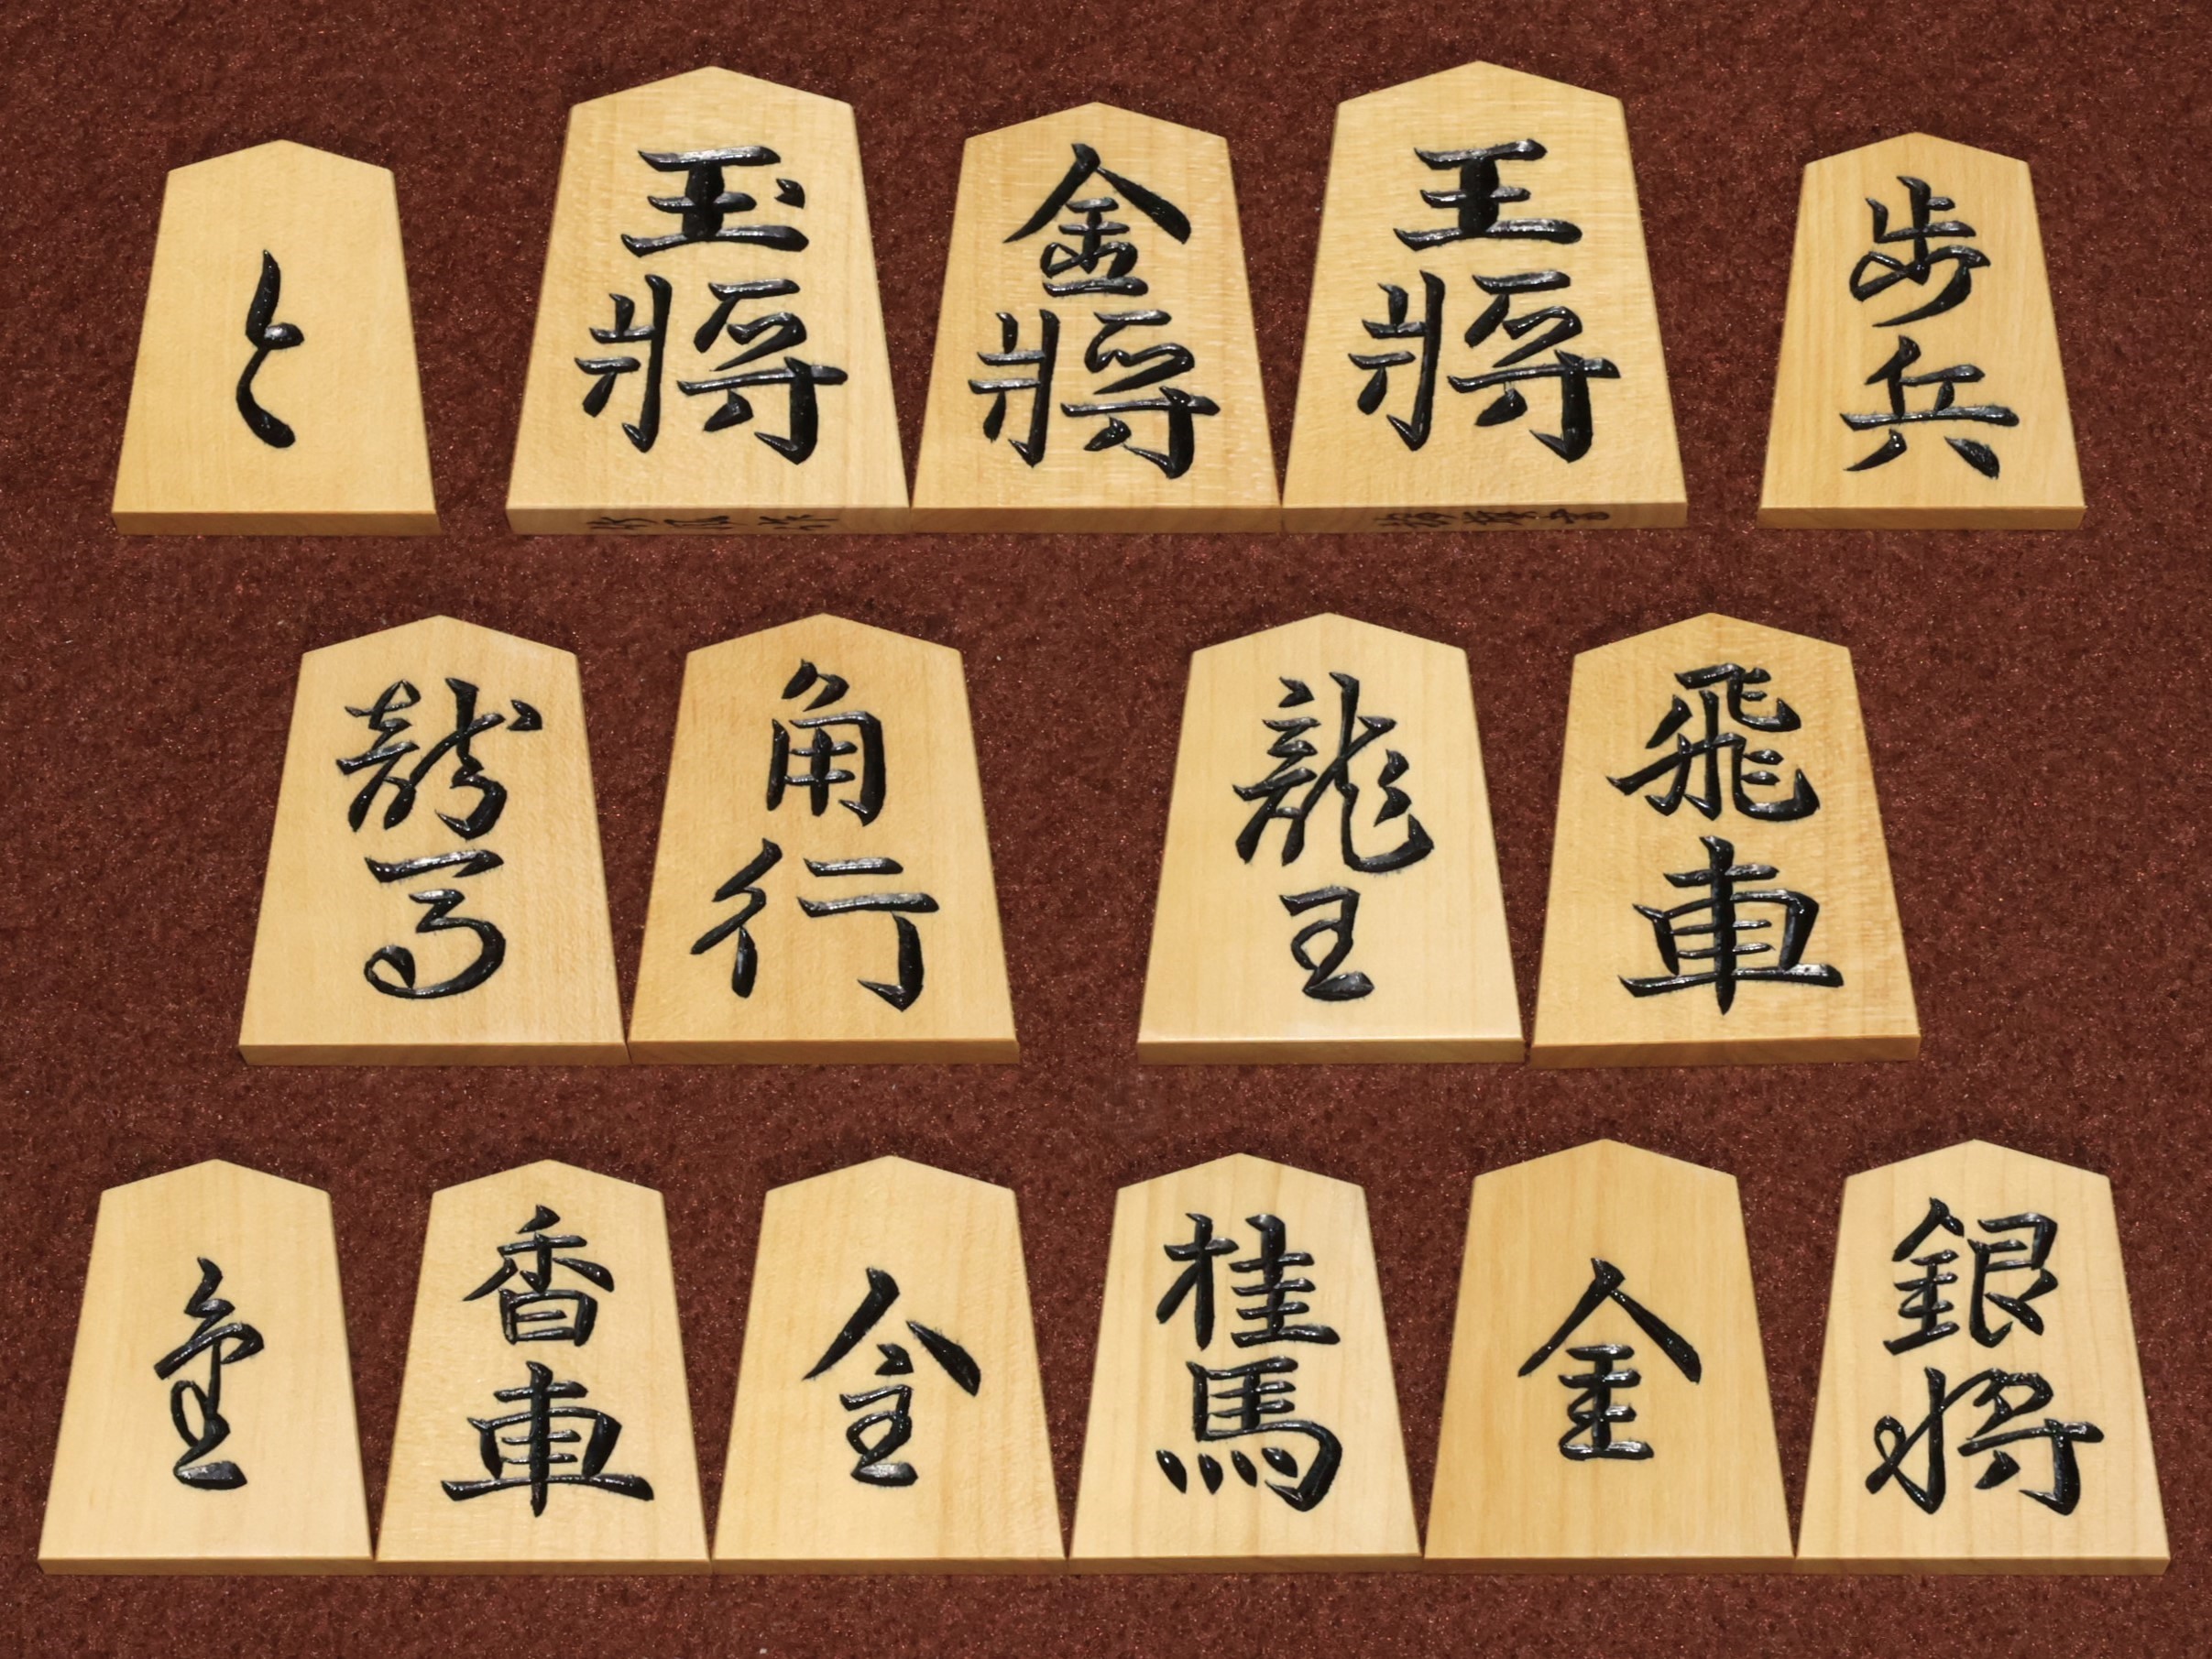 と
玉將
金將
王將
歩兵
龍馬
角行
龍王
飛車
金
香車
金
桂馬
金
銀将